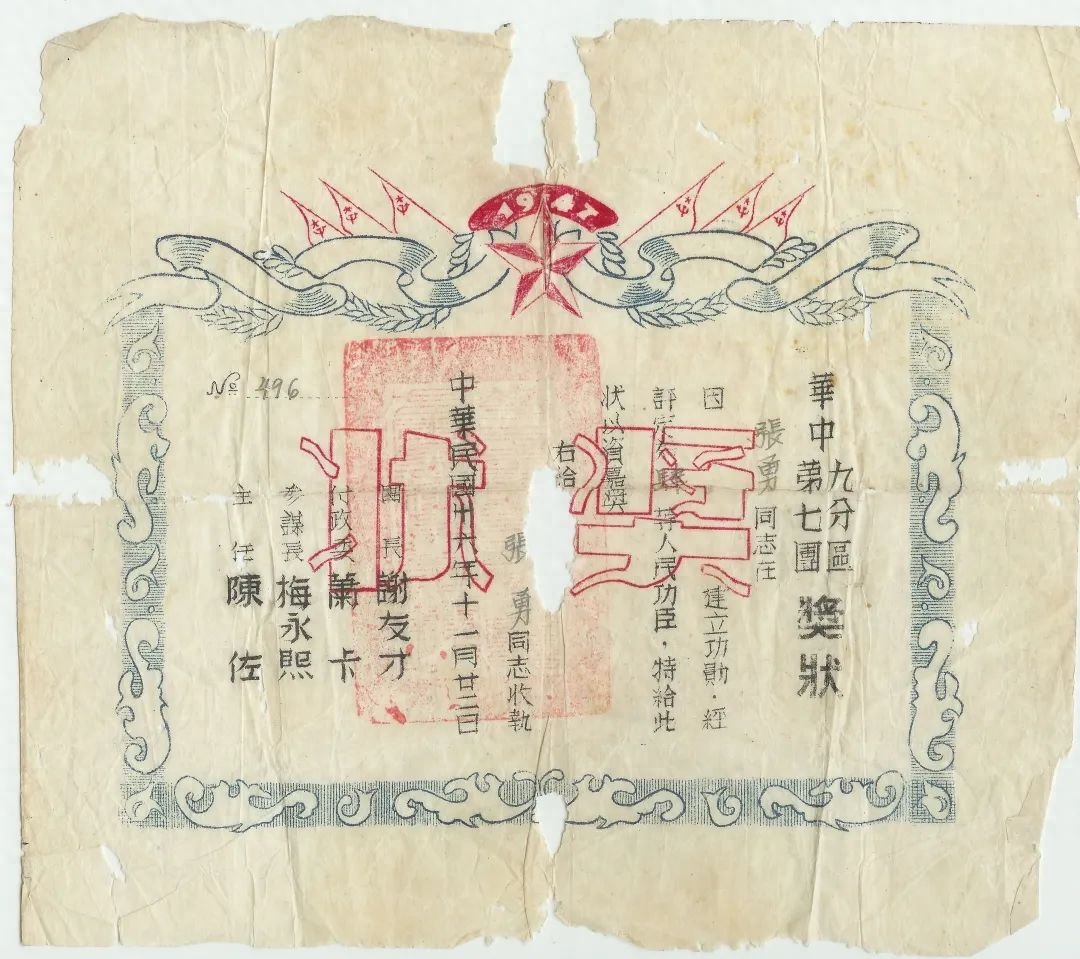 1947
華中九分區
第七團
獎狀
張勇同志在
因 建立功勛·經
評定為 等人民功臣·特給此
狀以資嘉獎
右給
張勇同志收執
中華民國卅六年十一月廿二日
團長 謝友才
付政委 蕭卡
參謀長 梅永熙
主任 陳佐
№ 496
獎狀